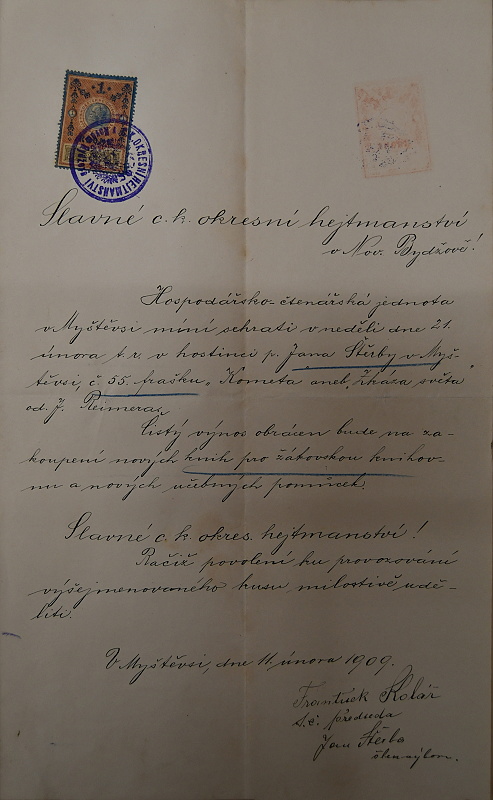 1
OKRESNÍ HEJTMANSTVÍ
Slavné c. k. okresní hejtmanství
v Nov. Bydžově!
Hospodářsko-čtenářská jednota
v Myštěvsi míní sehrati v neděli dne 21.
února t. r. v hostinci p. Jana Štěrby v Myš-
těvsi, č. 55. frašku „Kometa aneb „Zkáza světa"
od J. Reimeras.
Čistý výnos obrácen bude na za-
koupení nových knih pro žákovskou knihov-
nu a nových učebných pomůcek.
Slavné c. k. okres. hejtmanství!
Račiž povolení ku provozování
výšejmenovaného kusu milostivě udě-
liti.
V Myštěvsi, dne 11. února 1909.
František Kolář
t. č. předseda
Jan Štěrba